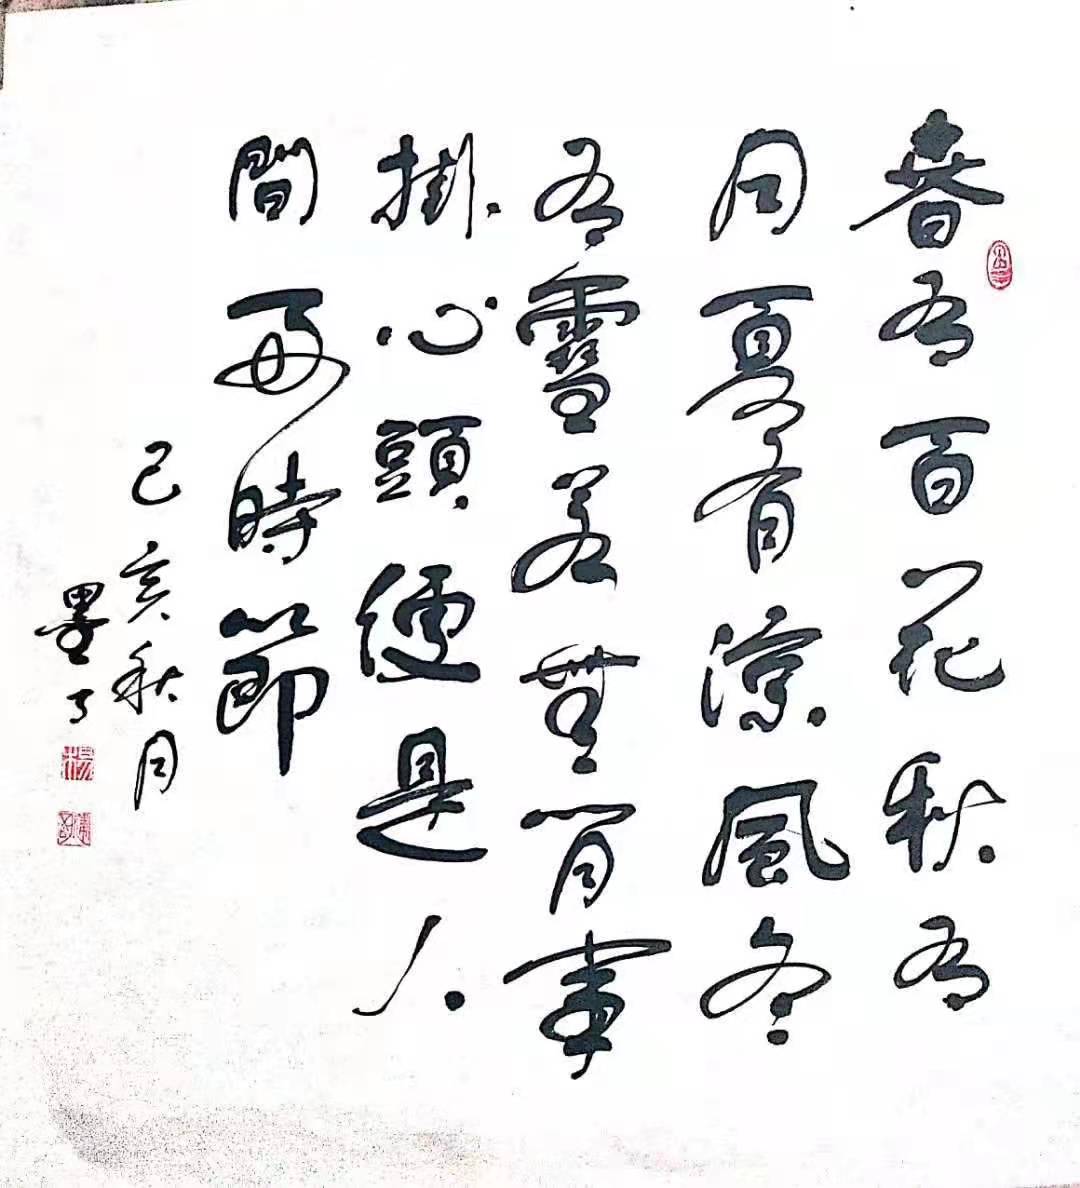 春有百花秋有
月夏有涼風冬
有雪若無閒事
掛心頭便是人
間好時節
己亥秋月
墨了